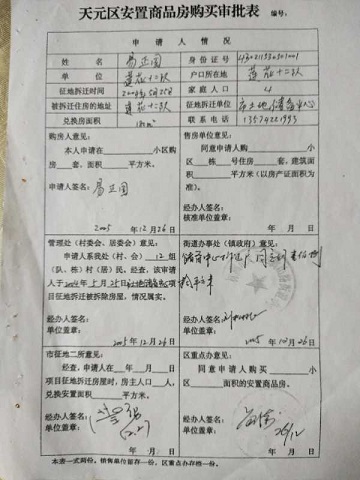 天元区安置商品房购买审批表 编号:
申请人情况
姓名 易正国 身份证号
单位 莲花十二队 户口所在地 莲花十二队
征地拆迁时间 家庭人口 4
被拆迁住房的地址 莲花十二队 征地拆迁单位 市土地储备中心
兑换房面积 联系电话
购房人意见:
本人申请在 小区购
房 套,面积 平方米。
申请人签名: 易正国
2005 年 12 月 26 日
售房单位意见:
同意申请人购买 小
区 栋 号住房 套,建筑面
积 平方米(以房产证面积为
准)。
经办人签名:
核准单位盖章:
年 月 日
管理处(村委会、居委会)意见:
申请人系我处(村、会) 12 组
(队、栋)村(居)民。经查,该申请
人于 年 5 月 25 日 项
目征地拆迁被拆除房屋,情况属实。
经办人签名:
单位盖章:
2005 年 12 月 26 日
街道办事处(镇政府)意见:
经办人签名:
单位盖章:
2005 年 12 月 26 日
市征地二所意见:
经查,申请人在 年 月
项目征地拆迁房屋时,房主人口 人,
兑换安置面积 平方米。
经办人签名:
单位盖章:
年 月 日
区重点办意见:
同意申请人购买 小
区 面积的安置商品房。
经办人签名:
单位盖章: 26/12
年 月 日
本表一式两份,销售单位留存一份,区重点办存档一份。